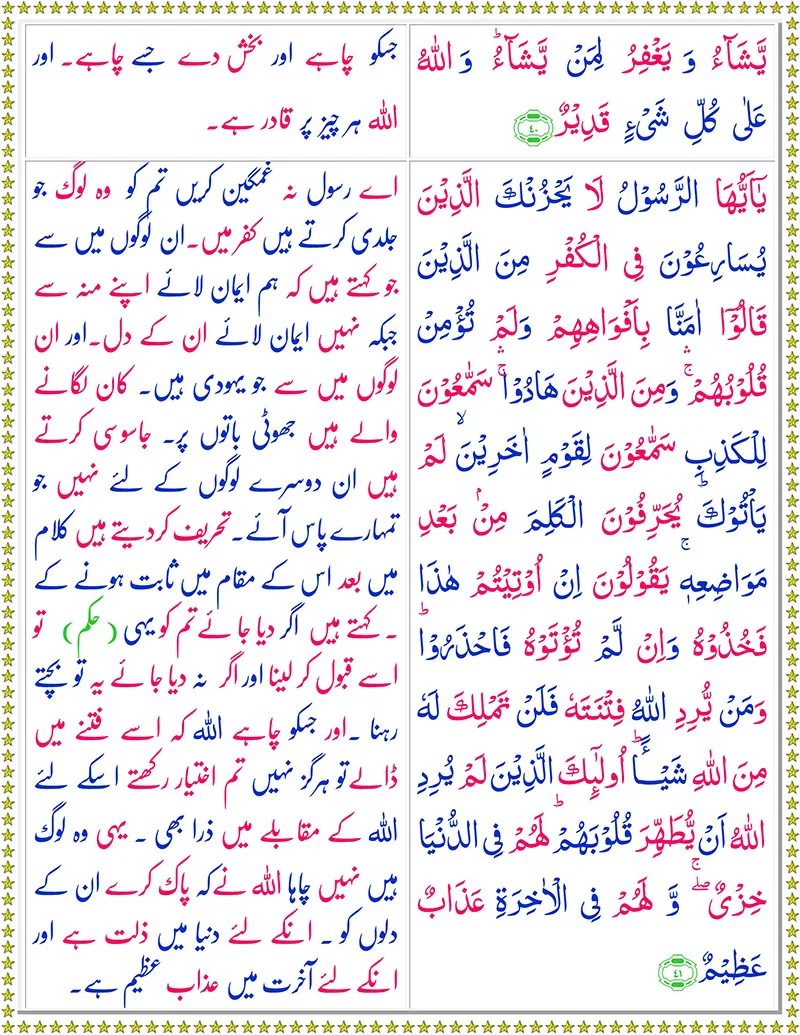 یَّشَآءُ وَ یَغْفِرُ لِمَنْ یَّشَآءُ ؕ وَ اللّٰهُ
عَلٰی كُلِّ شَیْءٍ قَدِیْرٌ ۴۰
جسکو چاہے اور بخش دے جسے چاہے۔ اور
اللہ ہر چیز پر قادر ہے۔
یٰۤاَیُّهَا الرَّسُوْلُ لَا یَحْزُنْكَ الَّذِیْنَ
یُسَارِعُوْنَ فِی الْكُفْرِ مِنَ الَّذِیْنَ
قَالُوْۤا اٰمَنَّا بِاَفْوَاهِهِمْ وَلَمْ تُؤْمِنْ
قُلُوْبُهُمْ ۛۚ وَمِنَ الَّذِیْنَ هَادُوْا ۛۚ سَمّٰعُوْنَ
لِلْكَذِبِ سَمّٰعُوْنَ لِقَوْمٍ اٰخَرِیْنَ ۙ لَمْ
یَاْتُوْكَ ؕ یُحَرِّفُوْنَ الْكَلِمَ مِنْۢ بَعْدِ
مَوَاضِعِهٖ ۚ یَقُوْلُوْنَ اِنْ اُوْتِیْتُمْ هٰذَا
فَخُذُوْهُ وَاِنْ لَّمْ تُؤْتَوْهُ فَاحْذَرُوْا ؕ
وَمَنْ یُّرِدِ اللّٰهُ فِتْنَتَهٗ فَلَنْ تَمْلِكَ لَهٗ
مِنَ اللّٰهِ شَیْـًٔا ؕ اُولٰٓىِٕكَ الَّذِیْنَ لَمْ یُرِدِ
اللّٰهُ اَنْ یُّطَهِّرَ قُلُوْبَهُمْ ؕ لَهُمْ فِی الدُّنْیَا
خِزْیٌ ۚۖ وَّ لَهُمْ فِی الْاٰخِرَةِ عَذَابٌ
عَظِیْمٌ ۴۱
اے رسول نہ غمگین کریں تم کو وہ لوگ جو
جلدی کرتے ہیں کفر میں۔ ان لوگوں میں سے
جو کہتے ہیں کہ ہم ایمان لائے اپنے منہ سے
جبکہ نہیں ایمان لائے ان کے دل۔ اور ان
لوگوں میں سے جو یہودی ہیں۔ کان لگانے
والے ہیں جھوٹی باتوں پر۔ جاسوسی کرتے
ہیں ان دوسرے لوگوں کے لئے نہیں جو
تمہارے پاس آئے۔ تحریف کر دیتے ہیں کلام
میں بعد اس کے مقام میں ثابت ہونے کے
۔ کہتے ہیں اگر دیا جائے تم کو یہی (حکم) تو
اسے قبول کر لینا اور اگر نہ دیا جائے یہ تو بچتے
رہنا ۔ اور جسکو چاہے اللہ کہ اسے فتنے میں
ڈالے تو ہرگز نہیں تم اختیار رکھتے اسکے لئے
اللہ کے مقابلے میں ذرا بھی ۔ یہی وہ لوگ
ہیں نہیں چاہا اللہ نے کہ پاک کرے ان کے
دلوں کو ۔ انکے لئے دنیا میں ذلت ہے اور
انکے لئے آخرت میں عذاب عظیم ہے۔